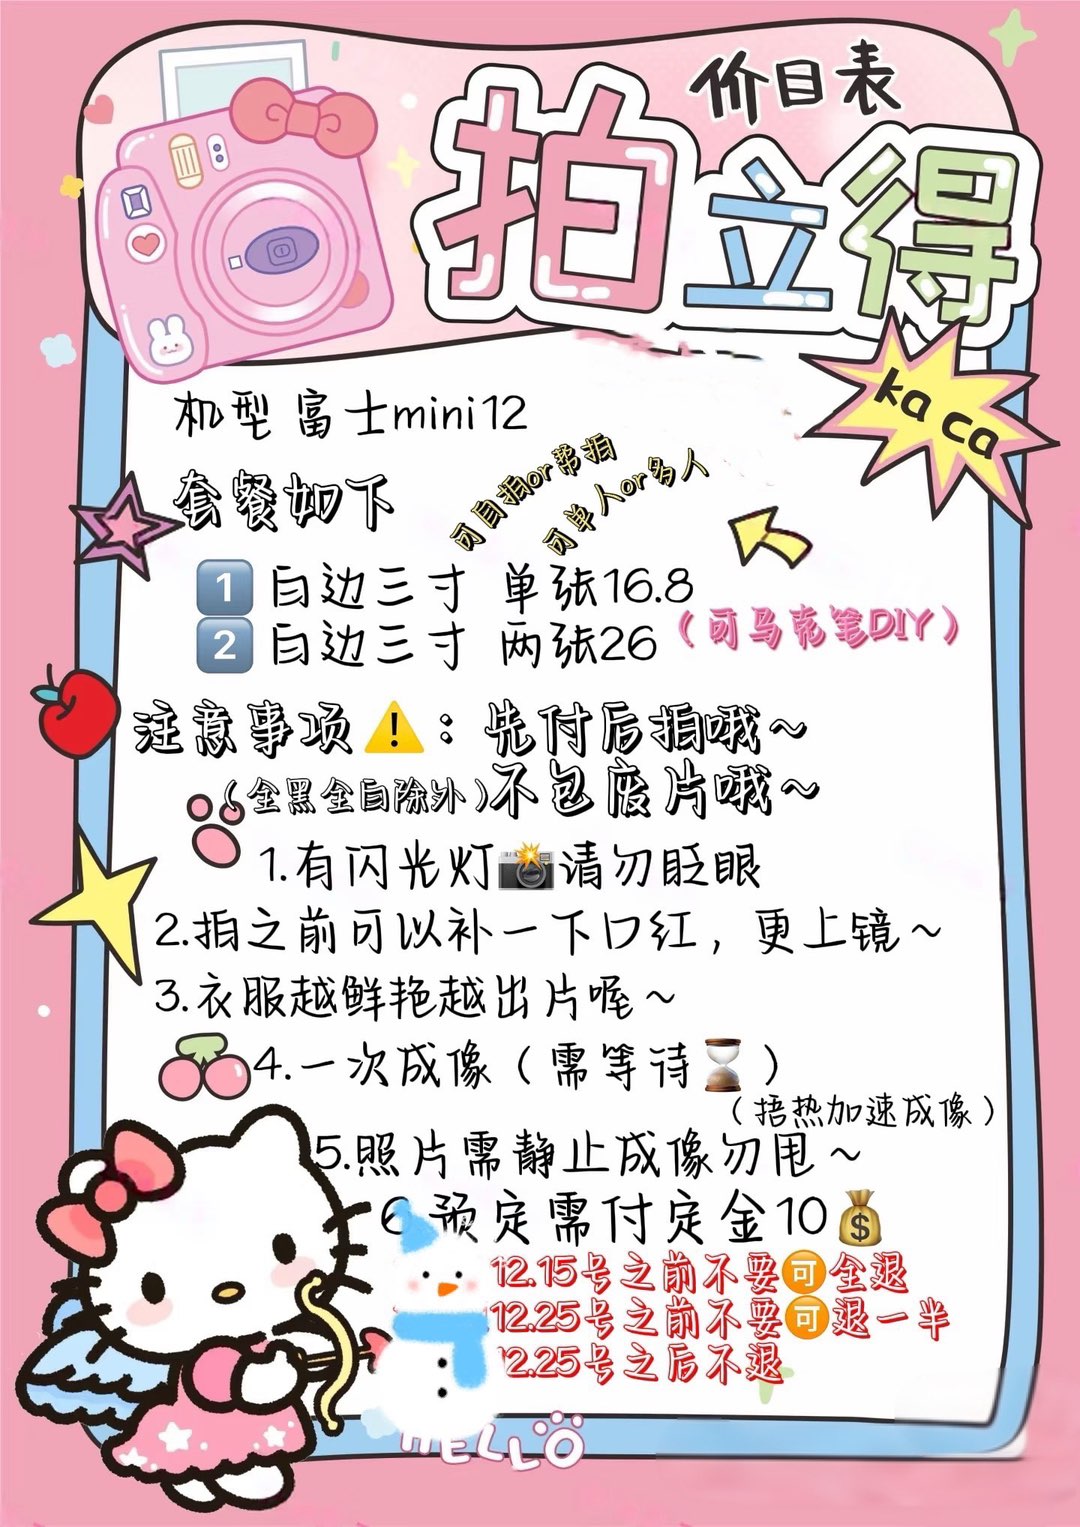 价目表
拍立得
ka ca
机型 富士mini12
套餐如下
可自拍or帮拍
可单人or多人
1 白边三寸 单张16.8
2 白边三寸 两张26
(可马克笔DIY)
注意事项⚠️：先付后拍哦~
(全黑全白除外)不包废片哦~
1.有闪光灯📸请勿眨眼
2.拍之前可以补一下口红，更上镜~
3.衣服越鲜艳越出片喔~
4.一次成像（需等待⏳）
（捂热加速成像）
5.照片需静止成像勿甩~
6.预定需付定金10💰
12.15号之前不要🉑全退
12.25号之前不要🉑退一半
12.25号之后不退
HELLO